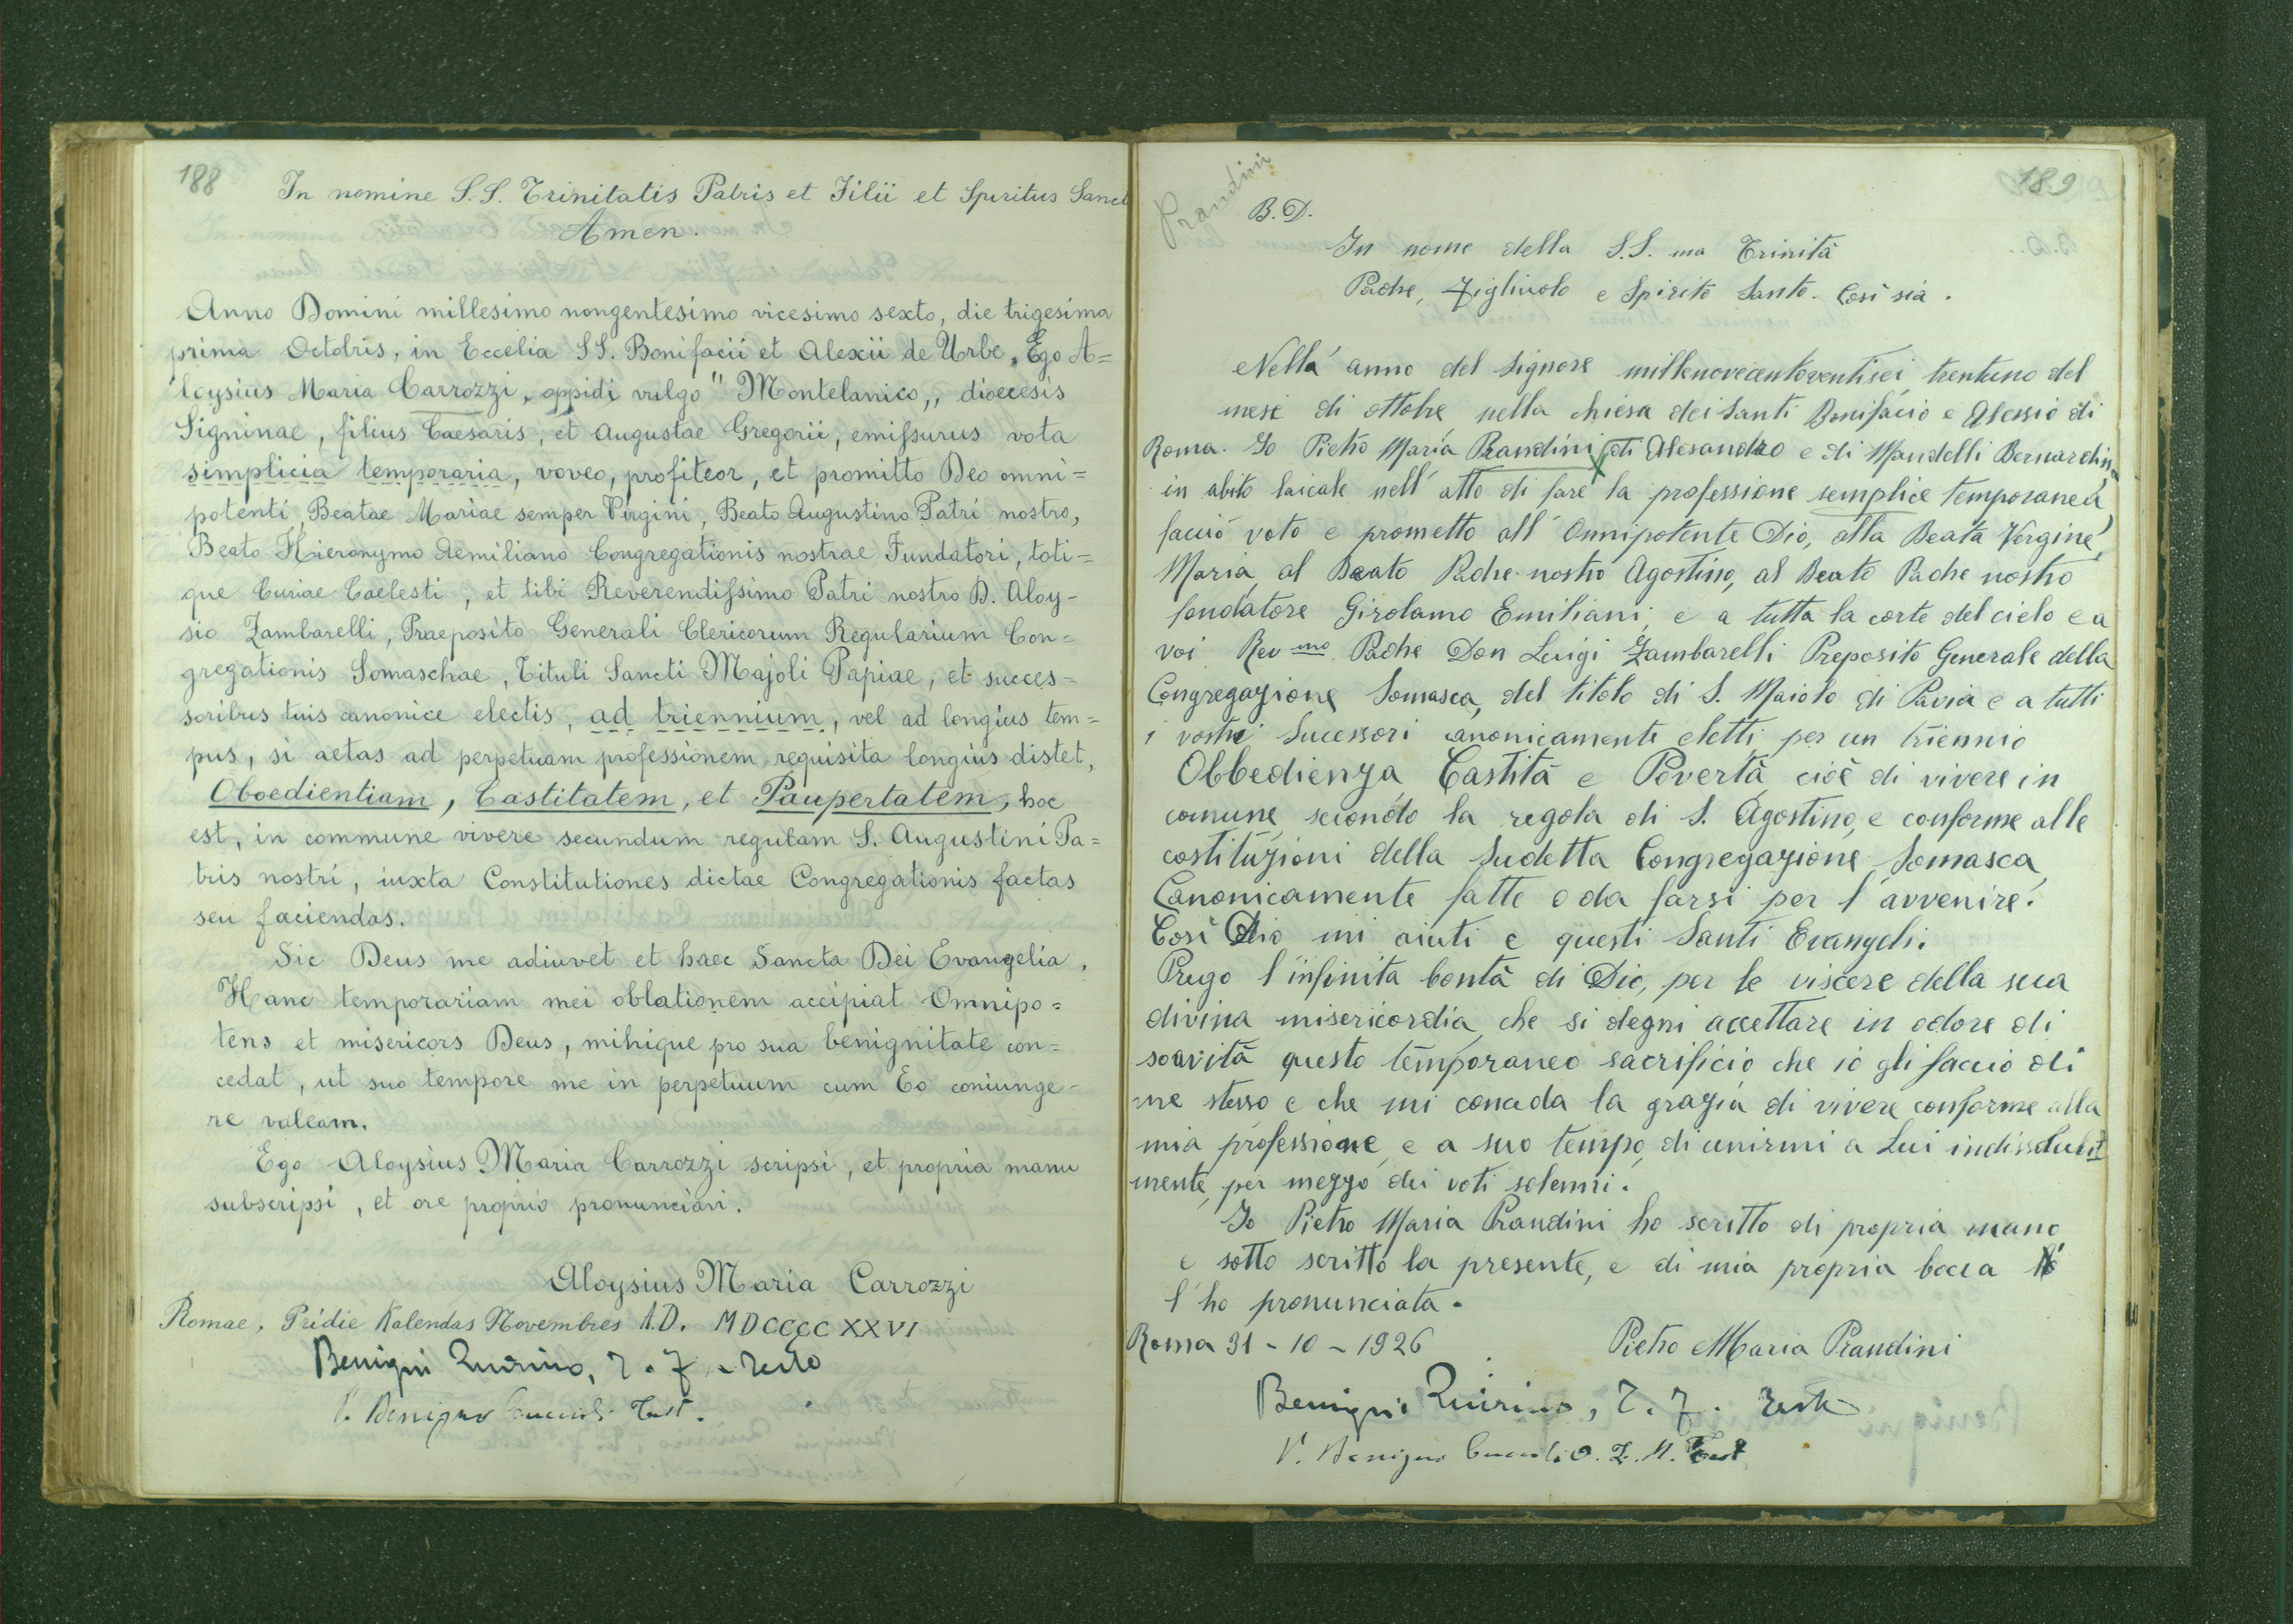 188
In nomine S.S. Trinitatis Patris et Filii et Spiritus Sanct
Amen.
Anno Domini millesimo nongentesimo vicesimo sexto, die trigesima
prima Octobris, in Eccelia SS. Bonifacii et Alexii de Urbe, Ego A=
loysius Maria Carrozzi, oppidi vulgo "Montelanico,, dioecesis
Signinae, filius Caesaris, et Augustae Gregorii, emissurus vota
simplicia temporaria, voveo, profiteor, et promitto Deo omni=
potenti, Beatae Mariae semper Virgini, Beato Augustino Patri nostro,
Beato Hieronymo Aemiliano Congregationis nostrae Fundatori, toti=
que Curiae Caelesti, et tibi Reverendissimo Patri nostro D. Aloy-
sio Zambarelli, Praeposito Generali Clericorum Regularium Con=
gregationis Somaschae, Tituli Sancti Majoli Papiae, et succes=
soribus tuis canonice electis, ad triennium, vel ad longius tem=
pus, si aetas ad perpetuam professionem requisita longius distet,
Oboedientiam, Castitatem, et Paupertatem, hoc
est, in commune vivere secundum regulam S. Augustini Pa=
tris nostri, iuxta Constitutiones dictae Congregationis factas
seu faciendas.
Sic Deus me adiuvet et haec Sancta Dei Evangelia.
Hanc temporariam mei oblationem accipiat Omnipo=
tens et misericors Deus, mihique pro sua benignitate con=
cedat, ut suo tempore me in perpetuum cum Eo coniunge-
re valeam.
Ego Aloysius Maria Carrozzi scripsi, et propria manu
subscripsi, et ore proprio pronunciavi.
Aloysius Maria Carrozzi
Romae, Pridie Kalendas Novembres A.D. MDCCCCXXVI
Benigni Quirino, T. F. Teste
V. Benigno Test.
189
Prandini
B.D.
In nome della S.S. ma Trinità
Padre, Figliuolo e Spirito Santo. Così sia.
Nell'anno del Signore millenovecentoventisei trentuno del
mese di ottobre nella chiesa dei Santi Bonifacio e Alessio di
Roma. Io Pietro Maria Prandini di Alesandro e di Mandelli Bernardina
in abito laicale nell'atto di fare la professione semplice temporanea
faccio voto e prometto all'Onnipotente Dio, alla Beata Vergine
Maria, al Beato Padre nostro Agostino, al Beato Padre nostro
fondatore Girolamo Emiliani, e a tutta la corte del cielo e a
voi Rev mo Padre Don Luigi Zambarelli Preposito Generale della
Congregazione Somasca, del titolo di S. Maiolo di Pavia e a tutti
i vostri Sucessori canonicamente eletti, per un triennio
Obbedienza, Castità e Povertà, cioè di vivere in
comune, secondo la regola di S. Agostino, e conforme alle
costituzioni della Sudetta Congregazione Somasca
Canonicamente fatte o da farsi per l'avvenire.
Così Dio mi aiuti e questi Santi Evangeli.
Prego l'infinita bontà di Dio, per le viscere della sua
divina misericordia, che si degni accettare in odore di
soavità questo temporaneo sacrificio che io gli faccio di
me stesso e che mi conceda la grazia di vivere conforme alla
mia professione, e a suo tempo, di unirmi a Lui indissolubil
mente, per mezzo dei voti solenni.
Io Pietro Maria Prandini ho scritto di propria mano
e sotto scritto la presente, e di mia propria bocca
l'ho pronunciata.
Roma 31-10-1926
Pietro Maria Prandini
Benigni Quirino, T. F. Teste
V. Benigno Test